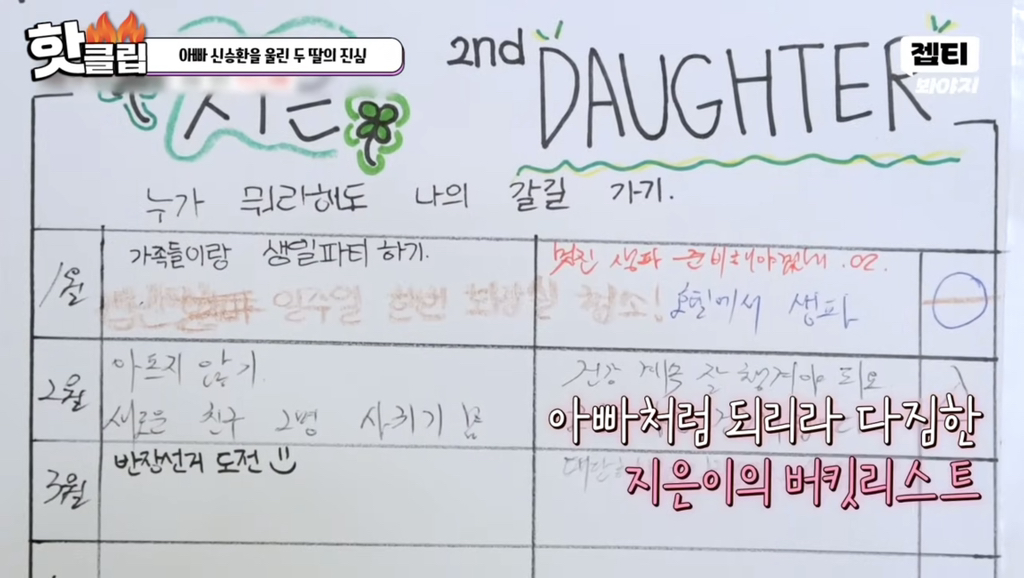 핫클립
아빠 신승환을 울린 두 딸의 진심
젭티
봐야지
2nd DAUGHTER
누가 뭐라해도 나의 갈길 가기.
1월
가족들이랑 생일파티 하기.
멋진 생파 준비해야겠네. 02.
일주일 한번 화장실 청소!
호텔에서 생파
2월
아프지 않기.
새로운 친구 2명 사귀기
건강 계속 잘 챙겨야 되요
3월
반장선거 도전
아빠처럼 되리라 다짐한
지은이의 버킷리스트